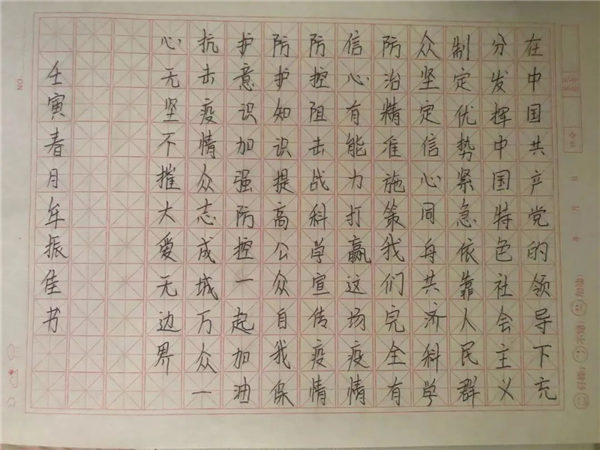 在中国共产党的领导下充
分发挥中国特色社会主义
制定优势紧急依靠人民群
众坚定信心同舟共济科学
防治精准施策我们完全有
信心有能力打赢这场疫情
防控阻击战科学宣传疫情
防护知识提高公众自我保
护意识加强防控一起加油
抗击疫情众志成城万众一
心无坚不摧大爱无边界
壬寅春月牟振佳书
NO.
年 月 日